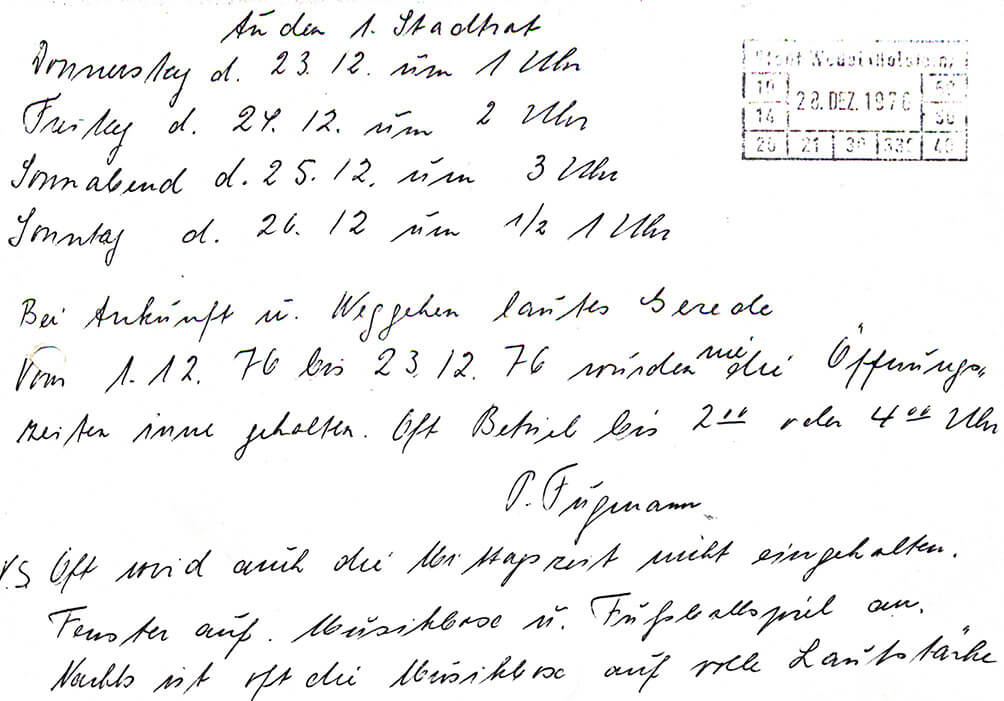 An den 1. Stadtrat
Donnerstag d. 23.12. um 1 Uhr
Freitag d. 24.12. um 2 Uhr
Sonnabend d. 25.12. um 3 Uhr
Sonntag d. 26.12 um 1/2 1 Uhr
Stadt Wedel (Holstein)
28. DEZ. 1976
10
14
20 21 30 40
Bei Ankunft u. Weggehen lautes Gerede
Vom 1.12. 76 bis 23.12.76 wurden nie die Öffnungs-
zeiten inne gehalten. Oft Betrieb bis 2⁰⁰ oder 4⁰⁰ Uhr
P. Fugmann
P.S Oft wird auch die Mittagszeit nicht eingehalten.
Fenster auf. Musikbox u. Fußballspiel an.
Nachts ist oft die Musikbox auf volle Lautstärke